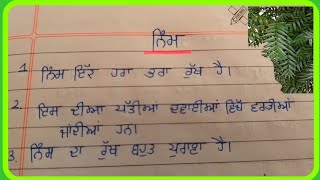 ਨਿੰਮ
1 ਨਿੰਮ ਇੱਕ ਹਰਾ ਭਰਾ ਰੁੱਖ ਹੈ।
2. ਇਸ ਦੀਆਂ ਪੱਤੀਆਂ ਦਵਾਈਆਂ ਵਿੱਚ ਵਰਤੀਆਂ
ਜਾਂਦੀਆਂ ਹਨ।
3. ਨਿੰਮ ਦਾ ਰੁੱਖ ਬਹੁਤ ਪੁਰਾਣਾ ਹੈ।